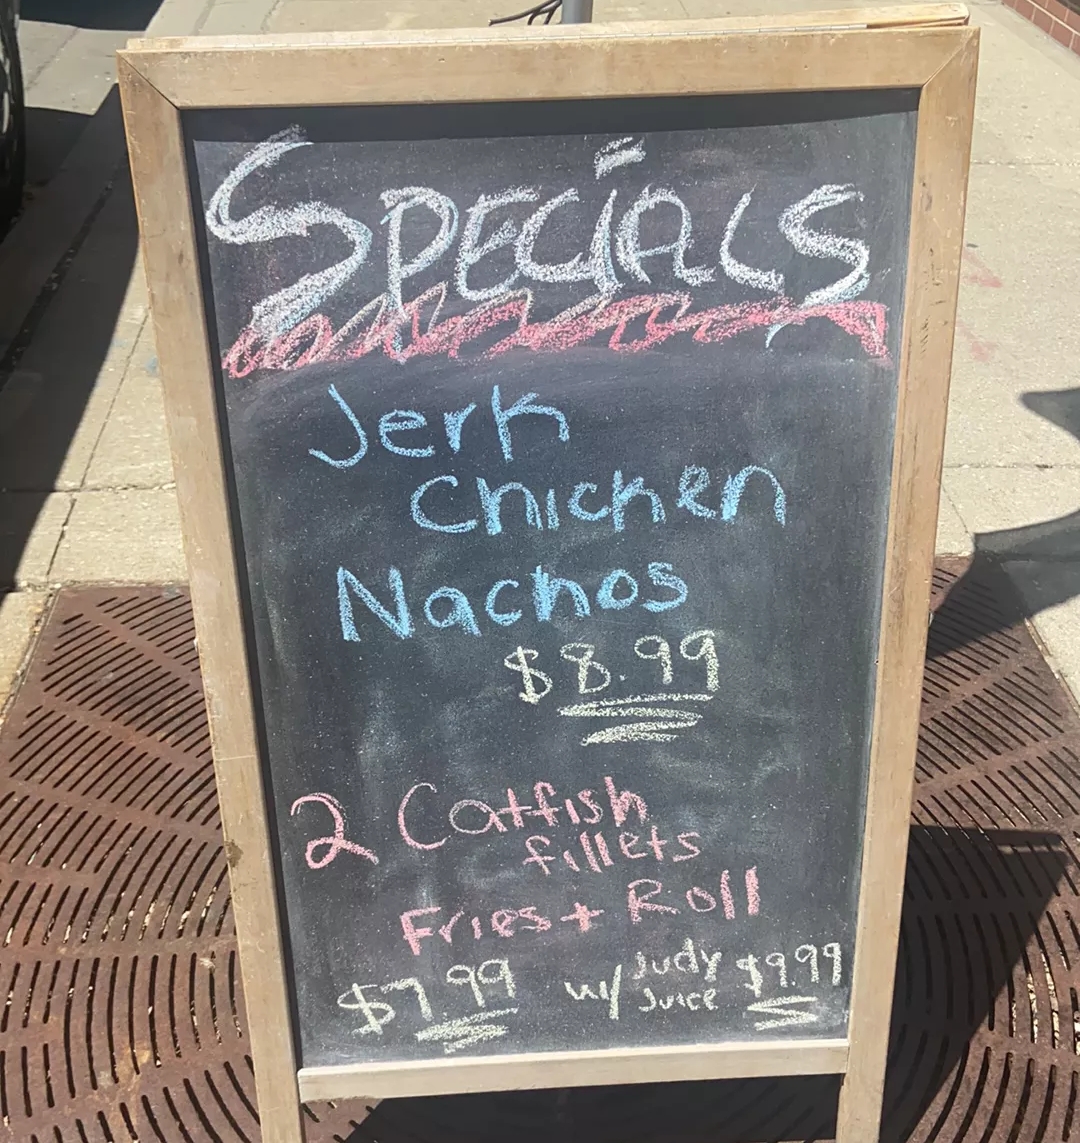 SPECiALS
Jerk
Chicken
Nachos
$8.99
2 Catfish
fillets
Fries + Roll
$7.99 w/ Judy Juice $9.99